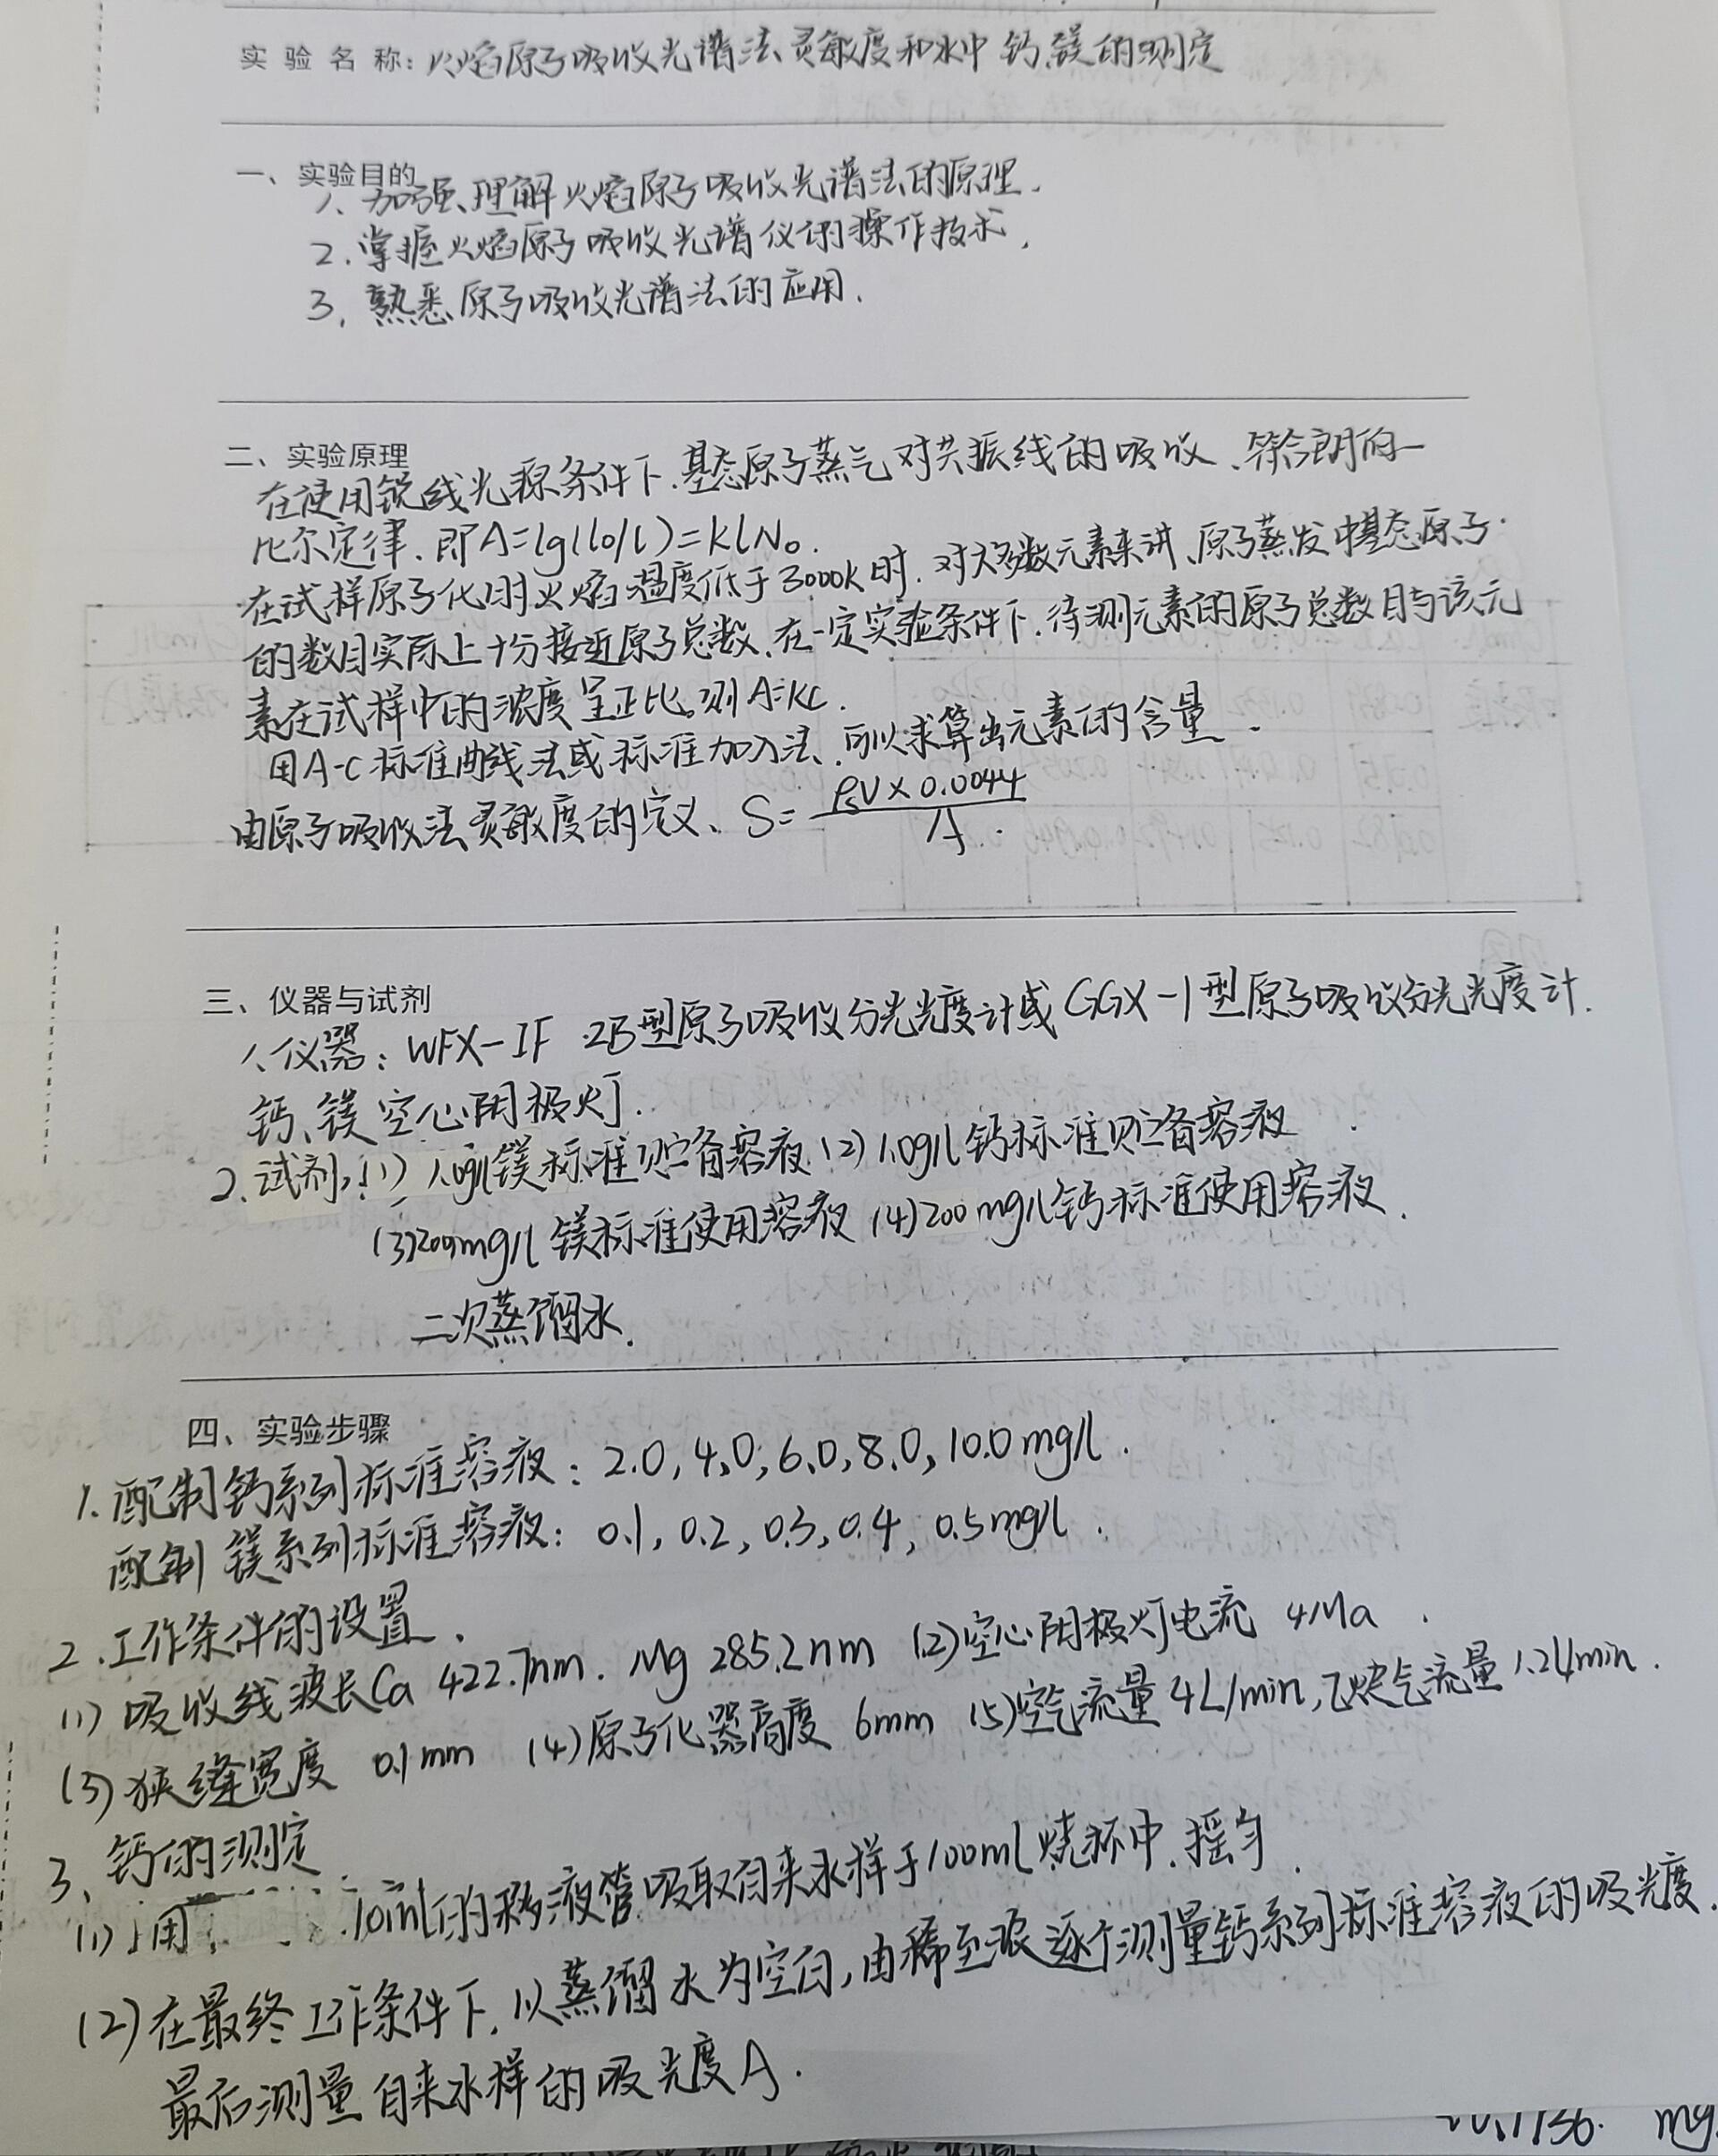 实 验 名 称：火焰原子吸收光谱法灵敏度和水中钙、镁的测定
一、实验目的
1、加强、理解火焰原子吸收光谱法的原理.
2.掌握火焰原子吸收光谱仪的操作技术.
3.熟悉原子吸收光谱法的应用.
二、实验原理
在使用锐线光源条件下.基态原子蒸气对共振线的吸收、符合朗伯一
比尔定律、即A=lg(I0/I)=KLN₀.
在试样原子化时火焰温度低于3000K时.对大多数元素来讲、原子蒸发中基态原子
的数目实际上十分接近原子总数.在一定实验条件下.待测元素的原子总数目与该元
素在试样中的浓度呈正比。则A=KC.
用A-C标准曲线法或标准加入法、可以求算出元素的含量.
由原子吸收法灵敏度的定义、S=ρsV×0.0044/A.
三、仪器与试剂
1、仪器：WFX-IF 2B型原子吸收分光光度计或GGX-1型原子吸收分光光度计.
钙、镁空心阴极灯.
2.试剂:(1) 1.0g/l镁标准贮备溶液(2)1.0g/l钙标准贮备溶液
(3)200mg/l镁标准使用溶液(4)200mg/l钙标准使用溶液.
二次蒸馏水.
四、实验步骤
1.配制钙系列标准溶液：2.0,4.0,6.0,8.0,10.0mg/l.
配制镁系列标准溶液：0.1,0.2,0.3,0.4,0.5mg/l.
2.工作条件的设置.
(1)吸收线波长Ca 422.7nm.Mg 285.2nm (2)空心阴极灯电流 4Ma.
(3)狭缝宽度 0.1mm (4)原子化器高度 6mm (5)空气流量4L/min,乙炔气流量1.2L/min.
3、钙的测定
(1)用 10ml的移液管吸取自来水样于100ml烧杯中.摇匀.
(2)在最终工作条件下.以蒸馏水为空白,由稀至浓逐个测量钙系列标准溶液的吸光度.
最后测量自来水样的吸光度A.
mg